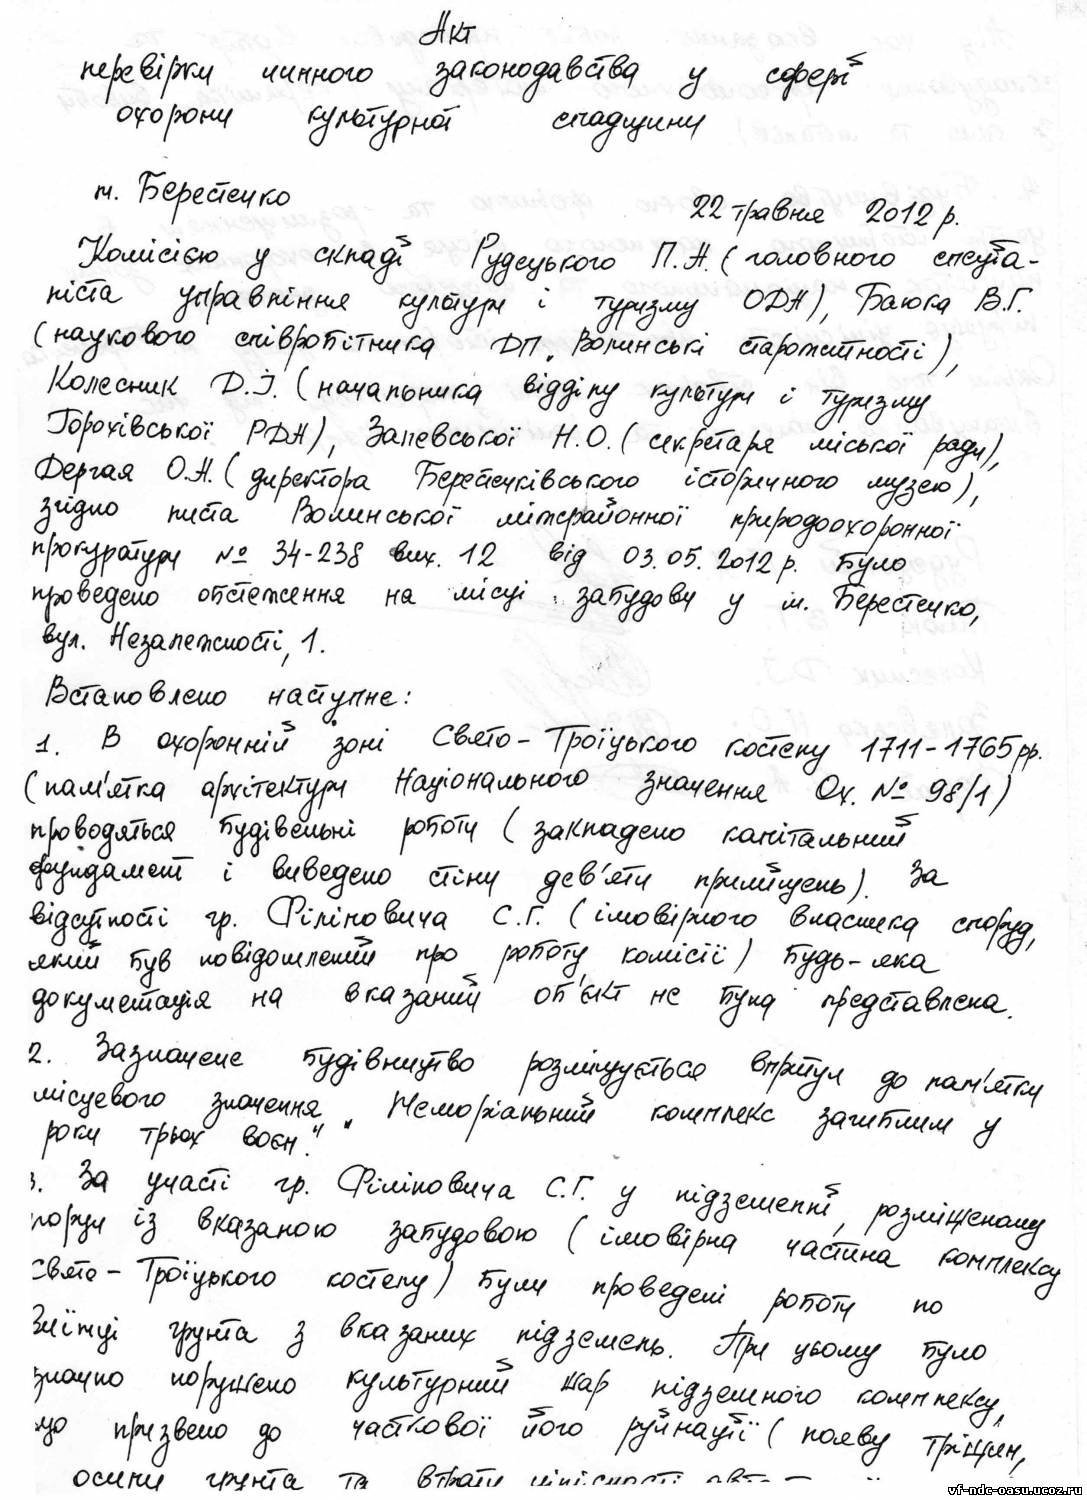 Акт
перевірки чинного законодавства у сфері
охорони культурної спадщини
м. Берестечко
22 травня 2012 р.
Комісією у складі Рудецького П.А. (головного спеціа-
ліста управління культури і туризму ОДА), Баюка В.Г.
(наукового співробітника ДП „Волинські старожитності),
Колесник Д.І. (начальника відділу культури і туризму
Горохівської РДА), Залевської Н.О. (секретаря міської ради),
Дергая О.А. (директора Берестечківського історичного музею),
згідно листа Волинської міжрайонної природоохоронної
прокуратури № 34-238 вих. 12 від 03.05.2012 р. було
проведено обстеження на місці забудови у м. Берестечко,
вул. Незалежності, 1.
Встановлено наступне:
1. В охоронній зоні Свято-Троїцького костелу 1711-1765 рр.
(пам'ятка архітектури Національного значення Ох. № 98/1)
проводяться будівельні роботи (закладено капітальний
фундамент і виведено стіни дев'яти приміщень). За
відсутності гр. Філіповича С.Г. (імовірного власника споруд,
який був повідомлений про роботу комісії) будь-яка
документація на вказаний об'єкт не була представлена.
2. Зазначене будівництво розміщується впритул до пам'ятки
місцевого значення „Меморіальний комплекс загиблим у
роки трьох воєн."
3. За участі гр. Філіповича С.Г. у підземеллі, розміщеному
поруч із вказаною забудовою (імовірна частина комплексу
Свято-Троїцького костелу) були проведені роботи по
виїмці грунта з вказаних підземель. При цьому було
значно порушено культурний шар підземного комплексу,
що призвело до часткової його руйнації (появу тріщин,
осипи грунта та втрати цілісності
vf-ndc-oasu.ucoz.ru